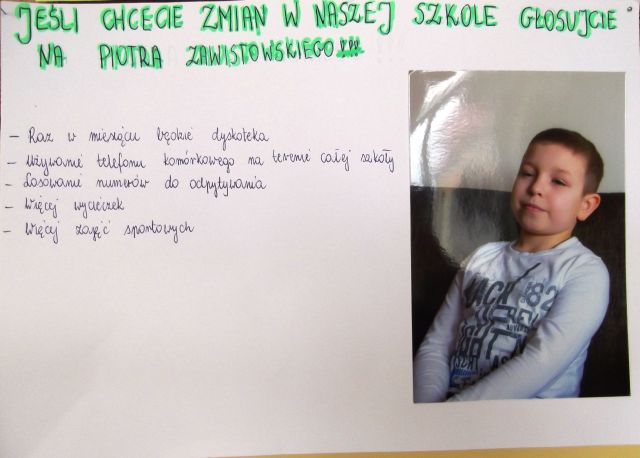 JEŚLI CHCECIE ZMIAN W NASZEJ SZKOLE GŁOSUJCIE
NA PIOTRA ZAWISTOWSKIEGO!!!
– Raz w miesiącu będzie dyskoteka
– Używanie telefonu komórkowego na terenie całej szkoły
– Losowanie numerów do odpytywania
– Więcej wycieczek
– Więcej zajęć sportowych
82